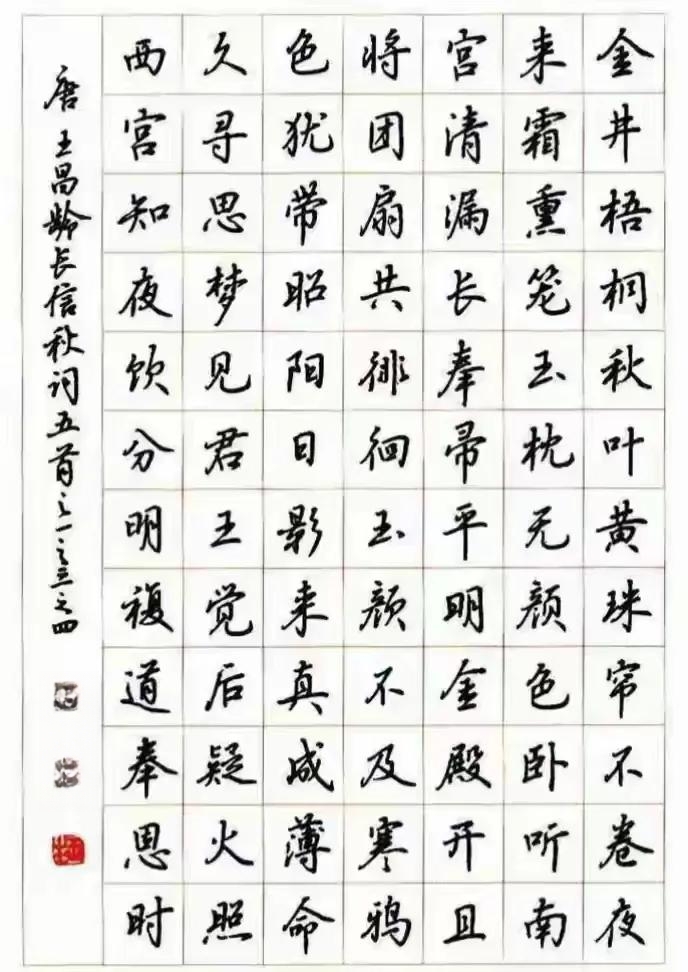 金井梧桐秋叶黄珠帘不卷夜
来霜熏笼玉枕无颜色卧听南
宫清漏长奉帚平明金殿开且
将团扇共徘徊玉颜不及寒鸦
色犹带昭阳日影来真成薄命
久寻思梦见君王觉后疑火照
西宫知夜饮分明複道奉恩时
唐王昌龄长信秋词五首之一之三之四